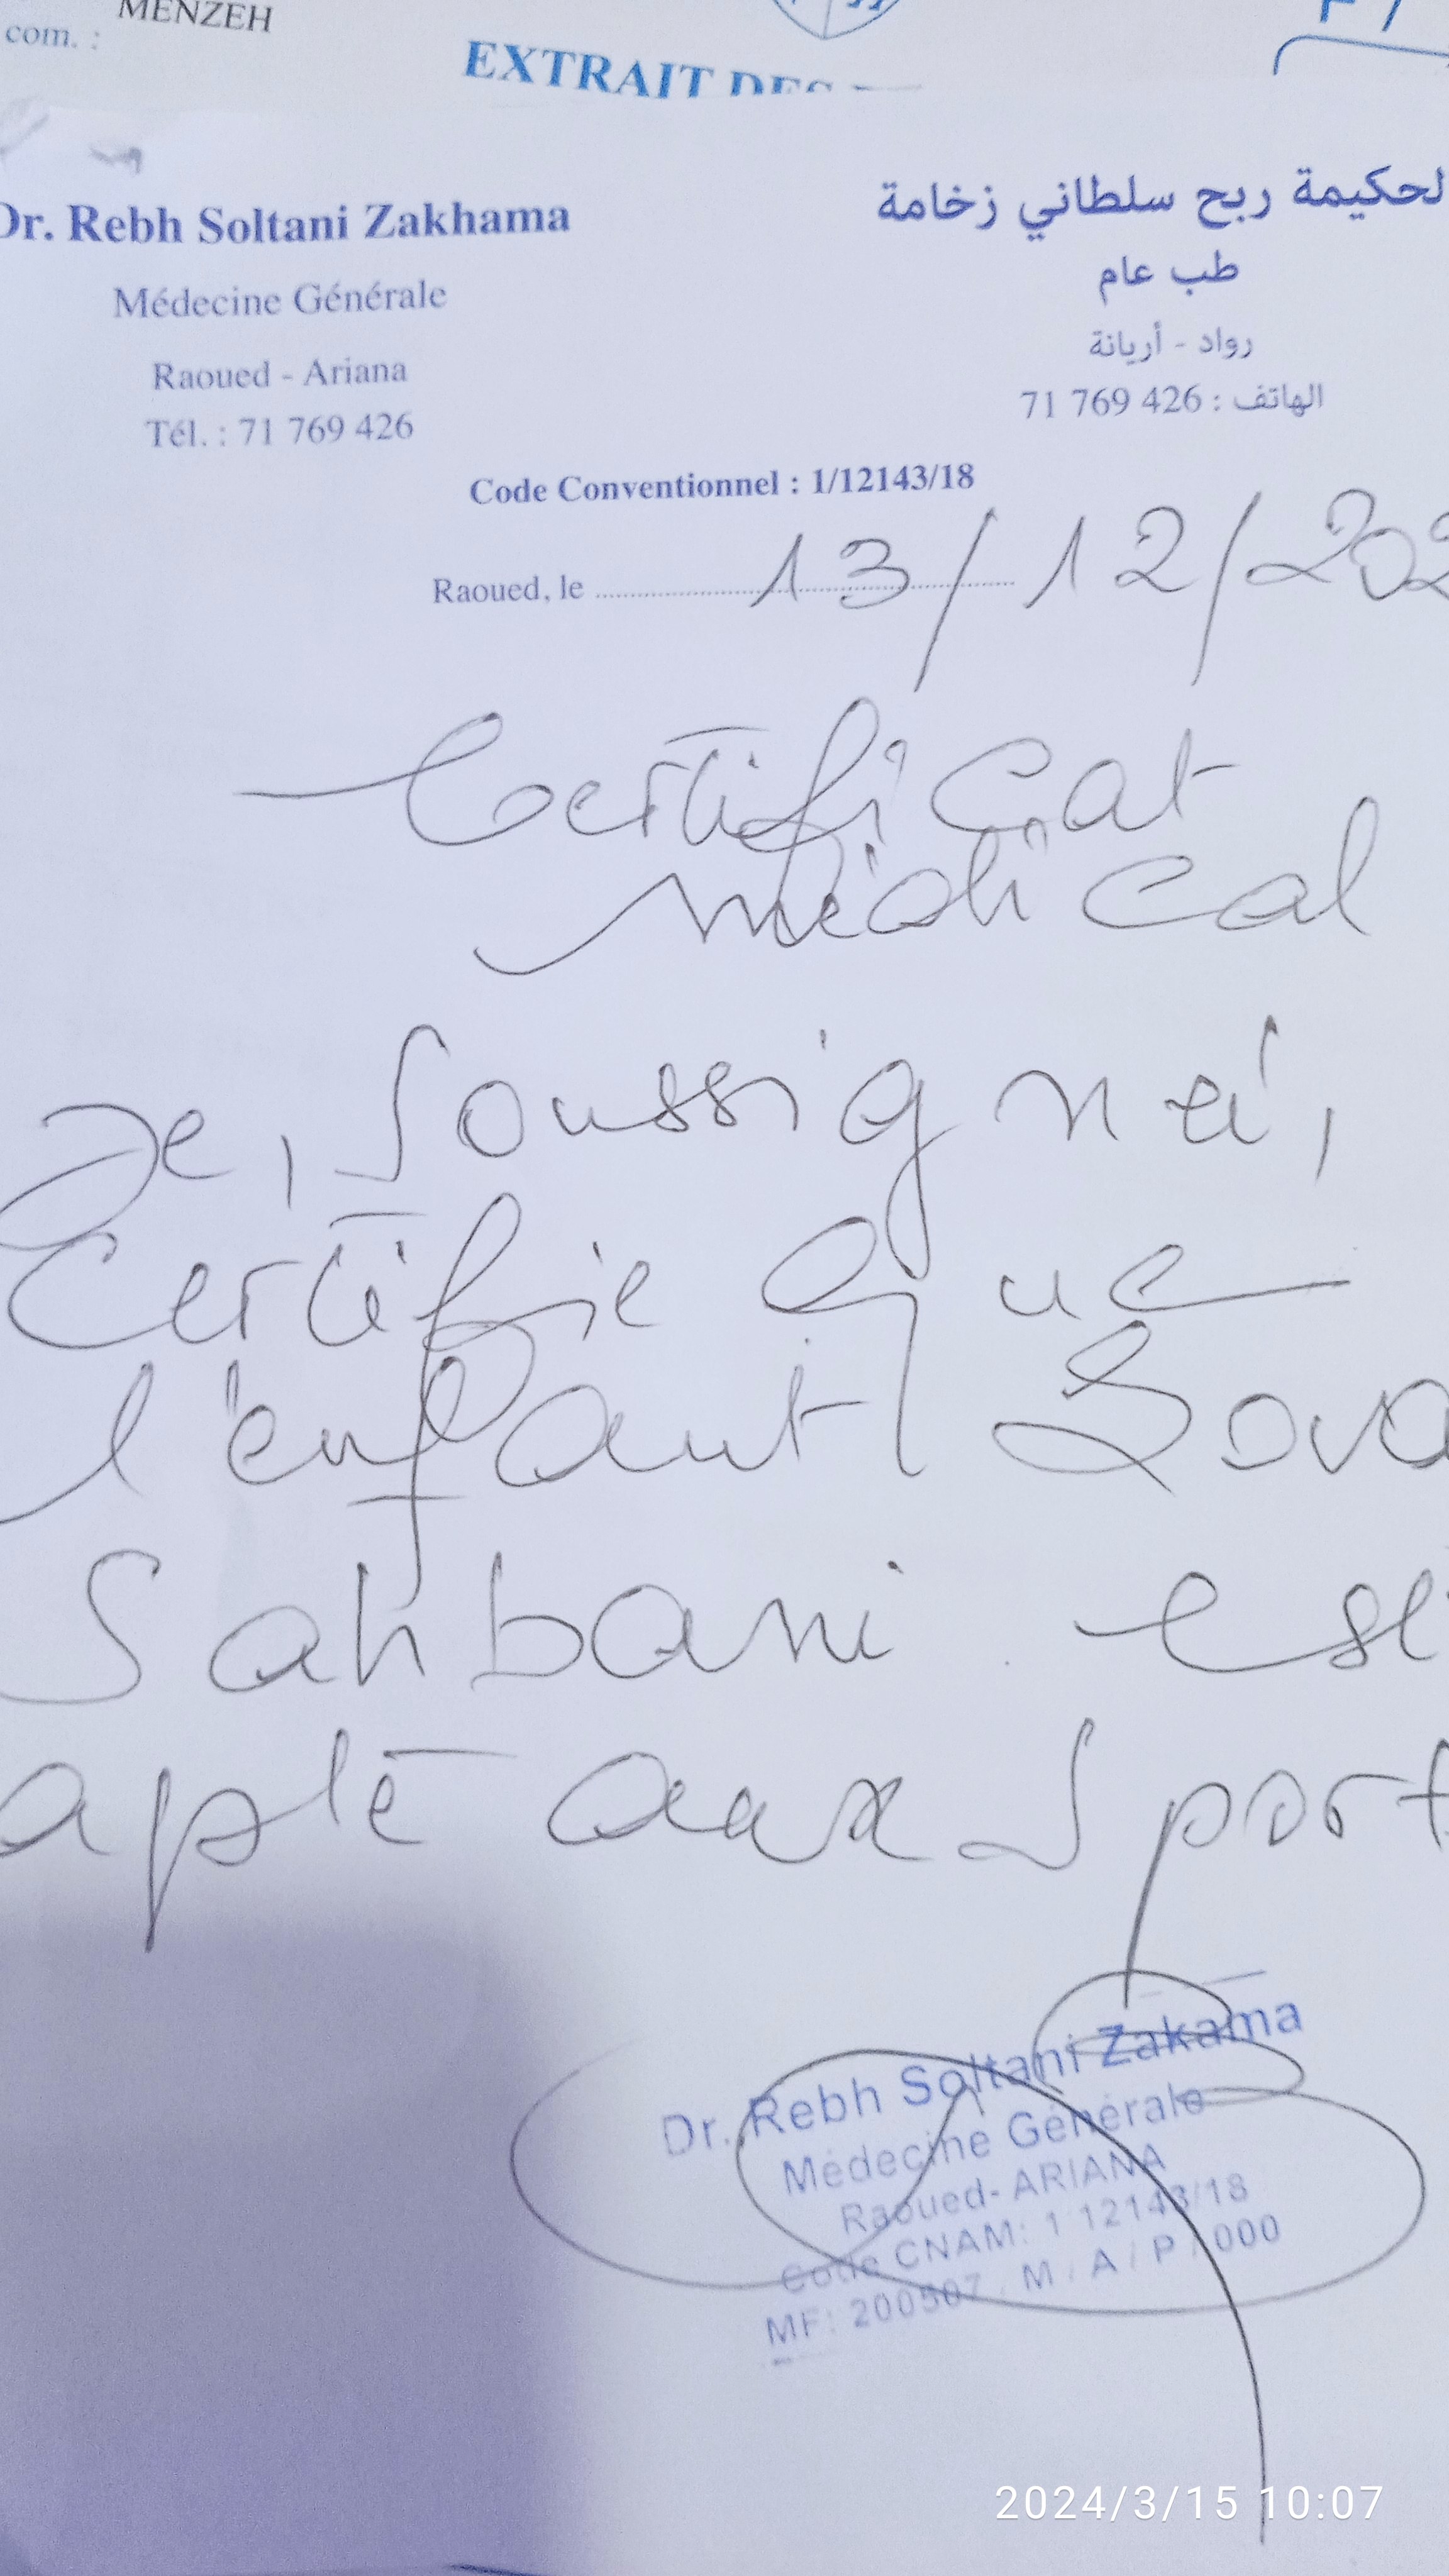 MENZEH
com. :
EXTRAIT DES
Dr. Rebh Soltani Zakhama
لحكيمة ربح سلطاني زخامة
Médecine Générale
طب عام
Raoued - Ariana
رواد - أريانة
Tél. : 71 769 426
الهاتف : 426 769 71
Code Conventionnel : 1/12143/18
Raoued, le 13/12/202
Certificat
médical
Je, soussigné,
Certifie que
l'enfant
Sahbani est
apte aux sport
Dr. Rebh Soltani Zakama
Médecine Générale
Raoued- ARIANA
Code CNAM: 1 12143/18
MF: 200507 / M / A / P / 000
2024/3/15 10:07